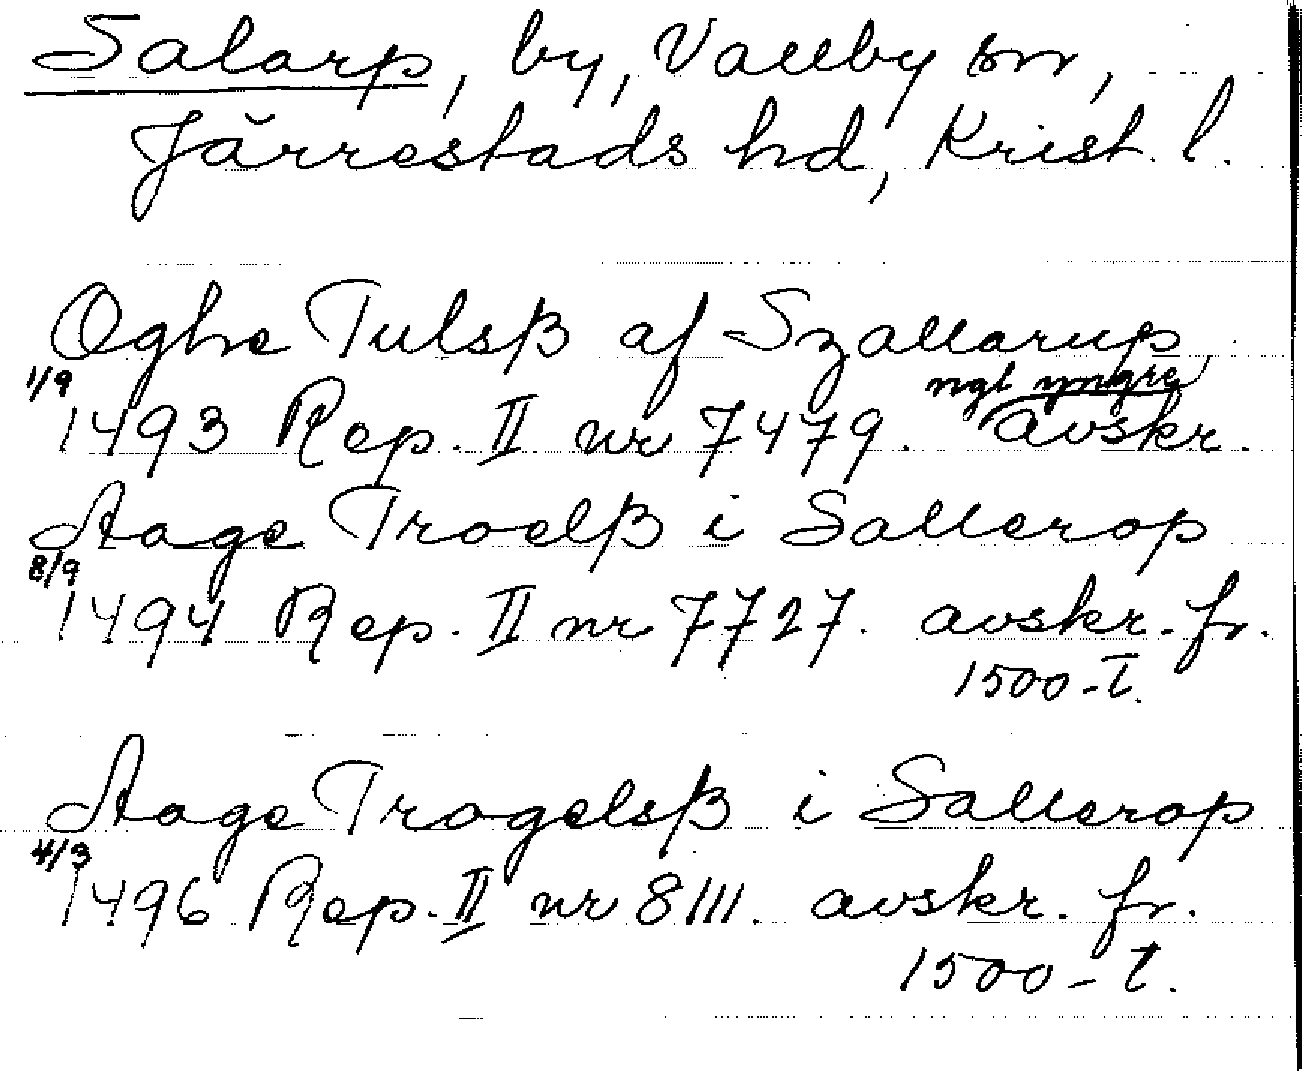 Salarp, by, Vallby sn,
Järrestads hd, Krist. l.
Oghe Tulsß af Szallarup
1/9 ngt yngre
1493 Rep. II nr 7479. avskr.
Aage Troelß i Sallerop
8/9
1494 Rep. II nr 7727. avskr. fr.
1500-t.
Aage Trogelsß i Sallerop
4/3
1496 Rep. II nr 8111. avskr. fr.
1500-t.